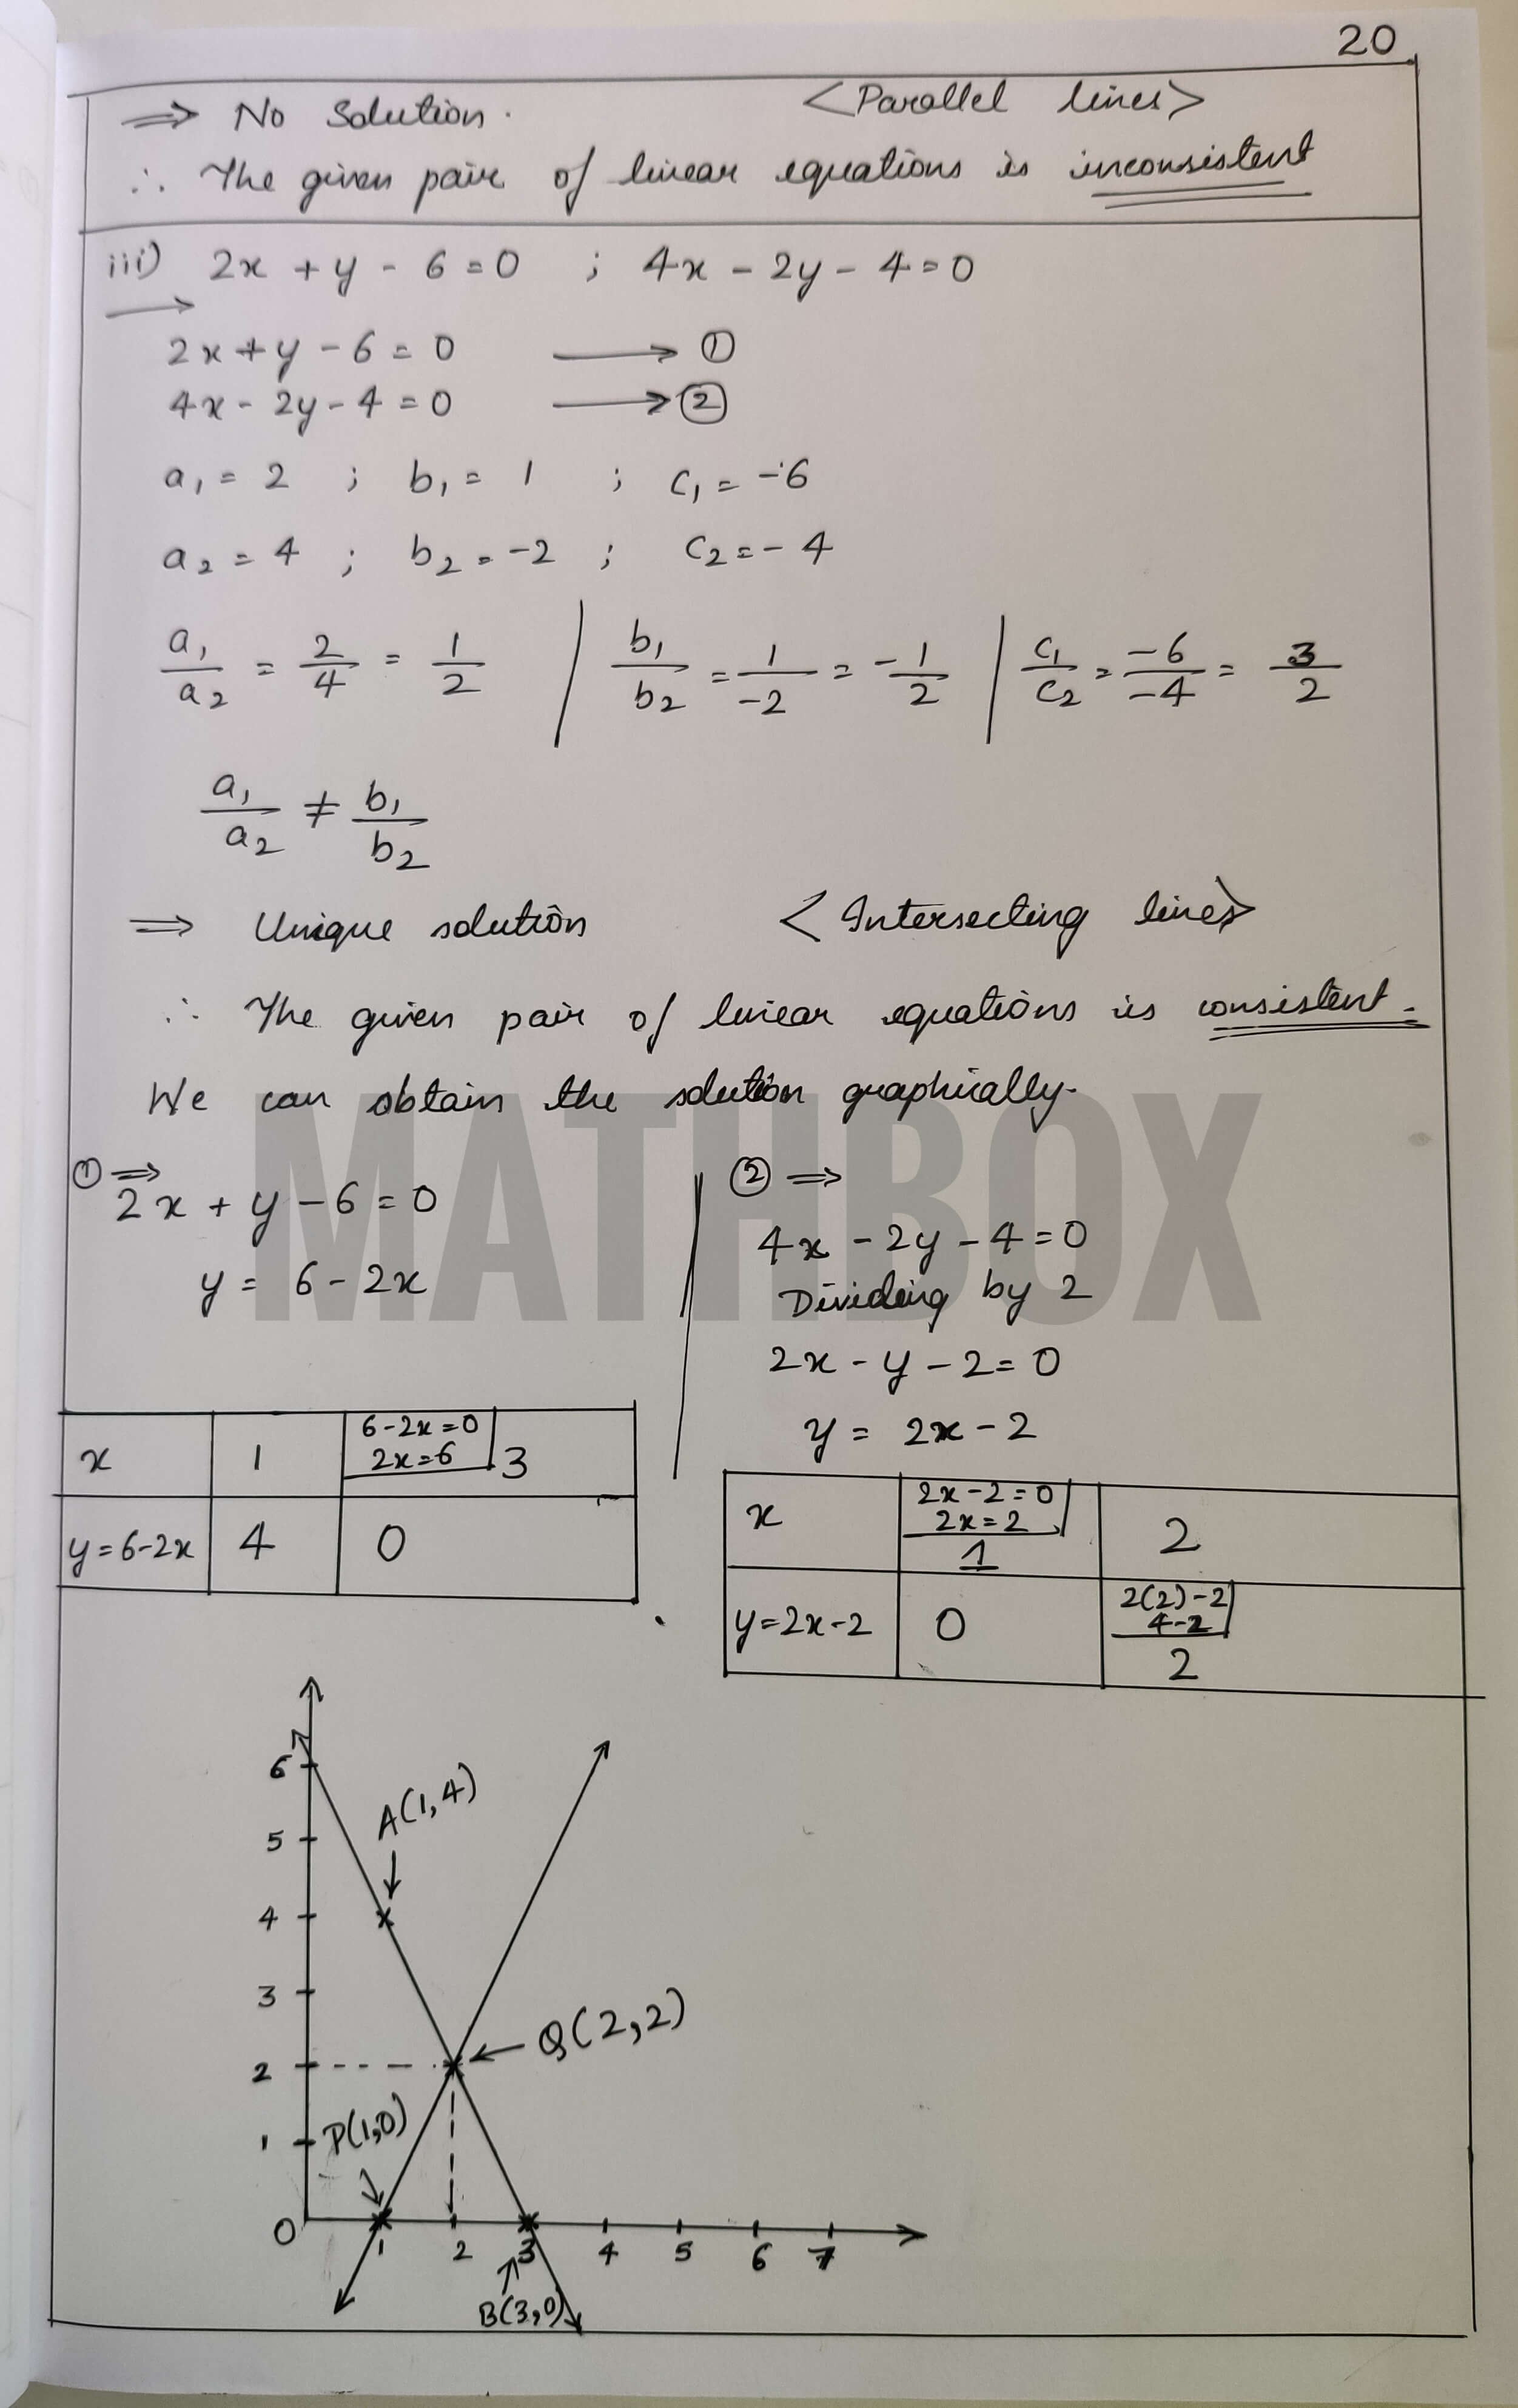 20
⇒ No Solution. <Parallel lines>
∴ The given pair of linear equations is inconsistent
iii) 2x + y - 6 = 0 ; 4x - 2y - 4 = 0
2x + y - 6 = 0 ⟶ ①
4x - 2y - 4 = 0 ⟶ ②
a₁ = 2 ; b₁ = 1 ; c₁ = -6
a₂ = 4 ; b₂ = -2 ; c₂ = -4
a₁/a₂ = 2/4 = 1/2 | b₁/b₂ = 1/-2 = -1/2 | c₁/c₂ = -6/-4 = 3/2
a₁/a₂ ≠ b₁/b₂
⇒ Unique solution <Intersecting lines>
∴ The given pair of linear equations is consistent.
We can obtain the solution graphically.
MATHBOX
① ⇒
2x + y - 6 = 0
y = 6 - 2x
x 1 6-2x=0 2x=6 3
y=6-2x 4 0
② ⇒
4x - 2y - 4 = 0
Dividing by 2
2x - y - 2 = 0
y = 2x - 2
x 2x-2=0 2x=2 1 2
y=2x-2 0 2(2)-2 4-2 2
6
A(1,4)
5
4
3
Q(2,2)
2
P(1,0)
1
0 1 2 3 4 5 6 7
B(3,0)